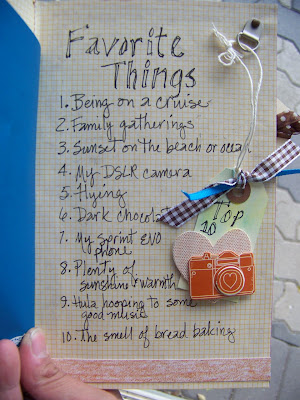 Favorite
Things
1. Being on a cruise
2. Family gatherings
3. Sunset on the beach or ocean
4. My DSLR camera
5. Flying
6. Dark chocolate
7. My Sprint EVO
phone
8. Plenty of
sunshine & warmth
9. Hula hooping to some
good music
10. The smell of bread baking
Top
10